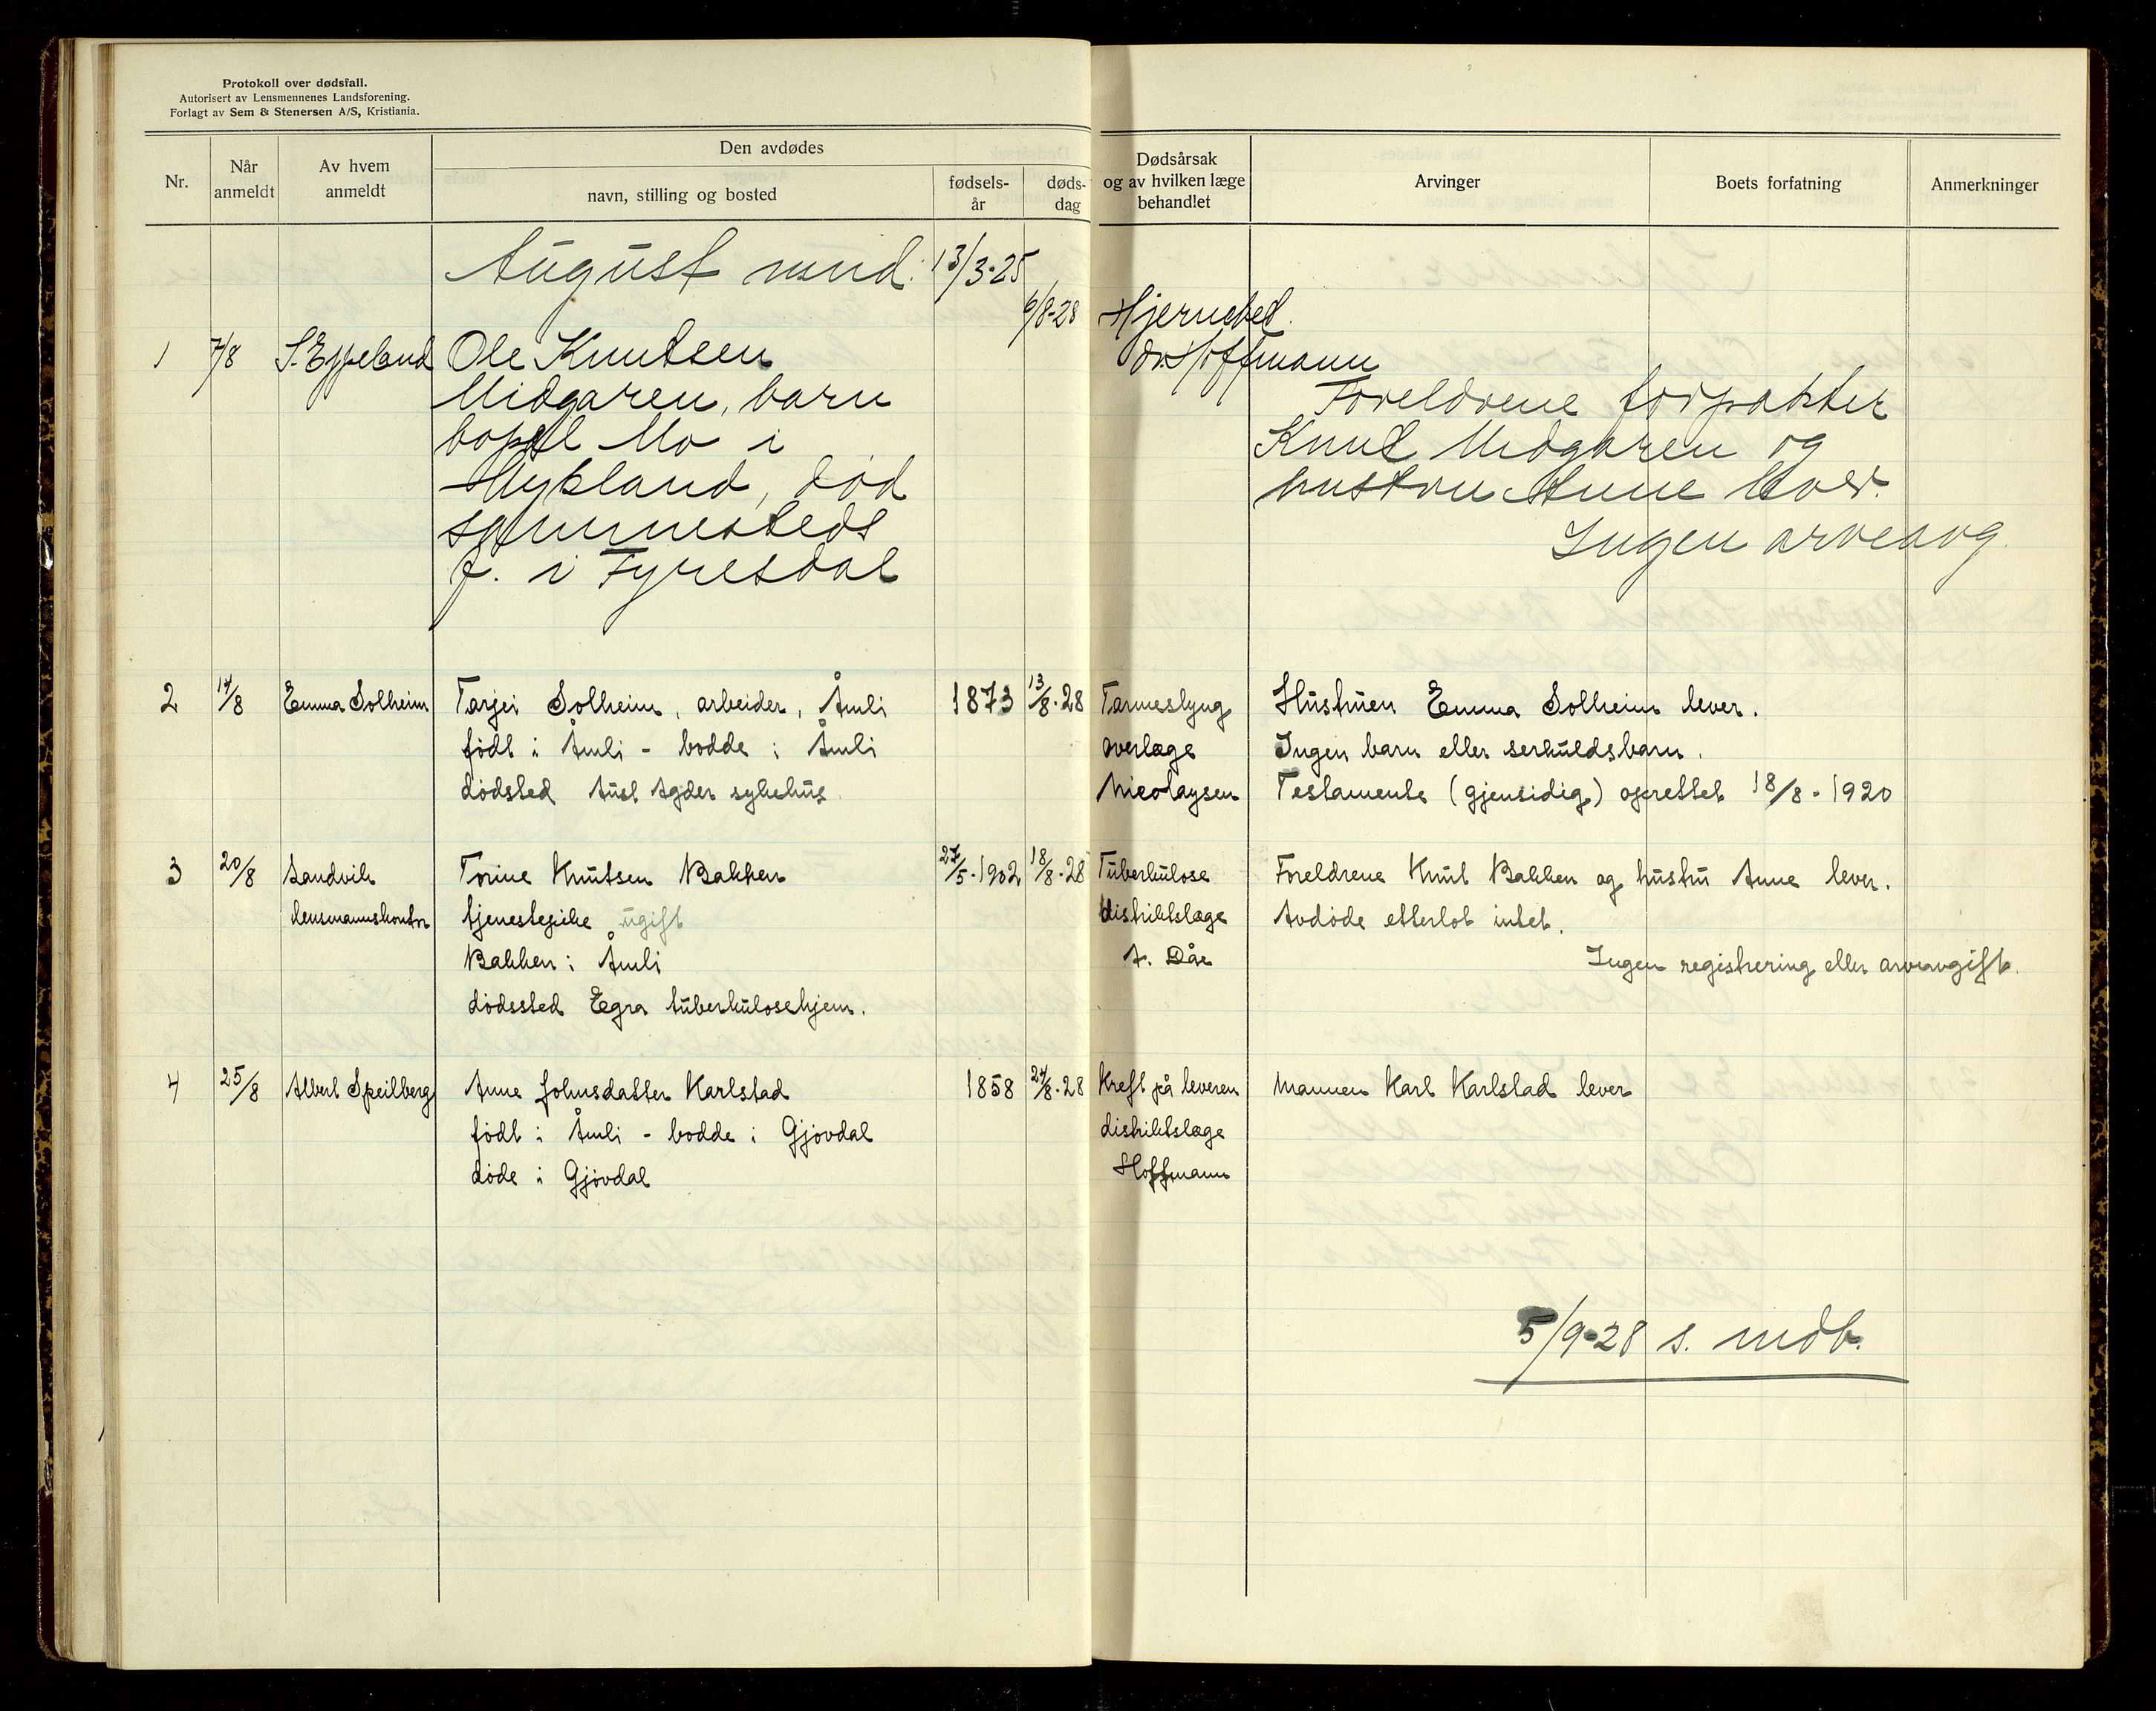 Protokoll over dødsfall.
Autorisert av Lensmennenes Landsforening.
Forlagt av Sem & Stenersen A/S, Kristiania.
Nr.
Når anmeldt
Av hvem anmeldt
Den avdødes
navn, stilling og bosted
fødsels-år
døds-dag
Dødsårsak og av hvilken læge behandlet
Arvinger
Boets forfatning
Anmerkninger
August mnd. 13/3-25
6/8-28 Hjernebet.
1 7/8 S. Eppeland Ole Knutsen dr. Hoffmann
Midgaren, barn Foreldrene forpakter
bopel Mo i Knut Midgaren og
Mykland, død hustru Anne
sammesteds Ingen arveavg.
f. i Fyresdal
2 14/8 Emma Solheim Tarjei Solheim, arbeider, Åmli 1873 13/8-28 Tarmeslyng Hustruen Emma Solheim lever.
født i Åmli - bodde i Åmli overlæge Ingen barn eller serkuldsbarn.
dødsted Aust Agder sykehus. Nicolaysen Testamente (gjensidig) oprettet 18/8-1920
3 20/8 Sandvik Torine Knutsen Bakken 27/5-1902 18/8-28 Tuberkulose Foreldrene Knut Bakken og hustru Anne lever.
lensmannskontor tjenestepike ugift distriktslæge Avdøde etterlot intet.
Bakken i Åmli A. Dåe Ingen registrering eller arveavgift.
dødssted Egra tuberkulosehjem.
4 25/8 Albert Speilberg Anne Johnsdatter Karlstad 1858 24/8-28 Kreft på leveren Mannen Karl Karlstad lever
født i Åmli - bodde i Gjøvdal distriktslæge
døde i Gjøvdal Hoffmann
5/9-28 s. mdb.